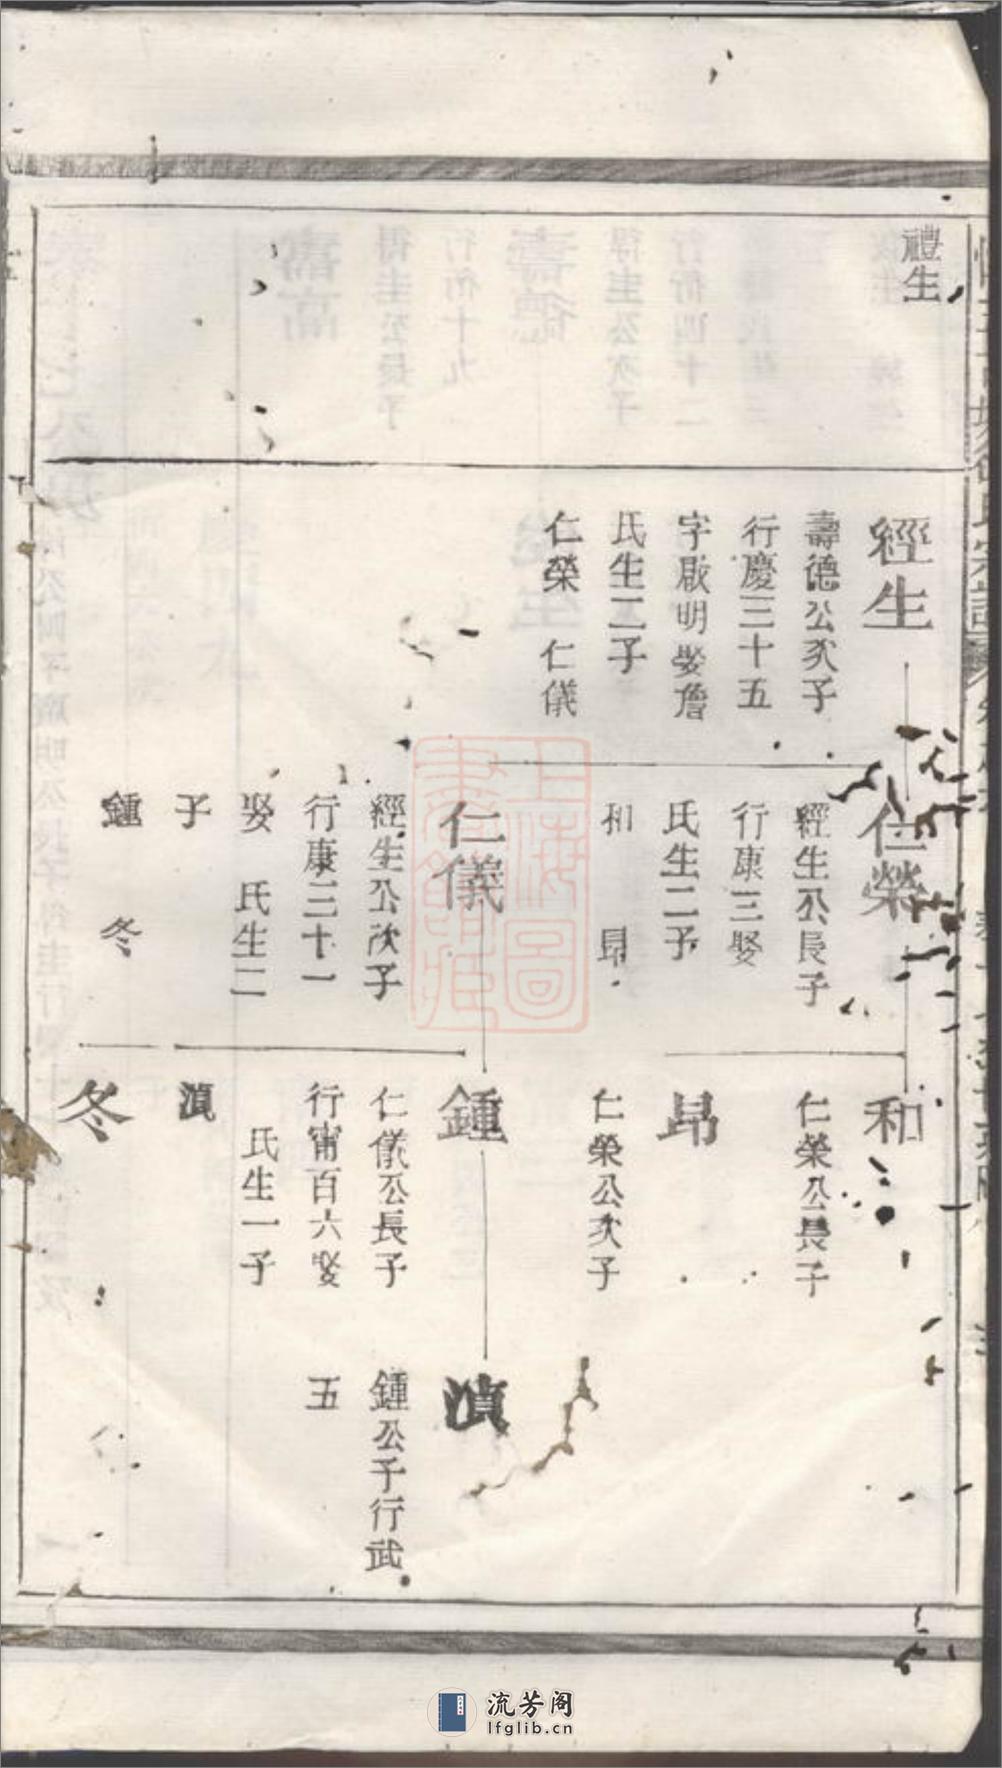 禮生
經生
壽德公次子
行慶三十五
字啟明娶詹
氏生二子
仁榮　仁儀
仁榮
經生公長子
行康三娶
氏生二子
和　昂
仁儀
經生公次子
行康三十一
娶　氏生二
子
鍾　冬
和
仁榮公長子
昂
仁榮公次子
鍾
仁儀公長子
行甯百六娶
氏生一子
滇
冬
滇
鍾公子行武
五
上海圖書館藏
流芳阁
lfglib.cn